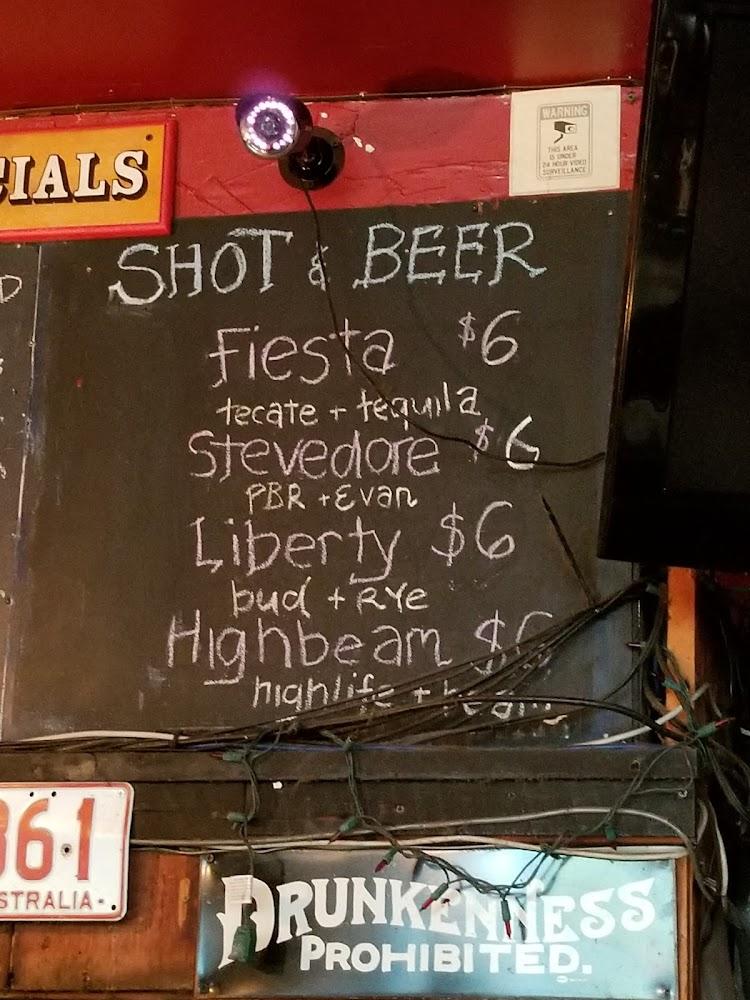 WARNING
THIS AREA
IS UNDER
24 HOUR VIDEO
SURVEILLANCE
CIALS
SHOT & BEER
Fiesta $6
tecate + tequila
Stevedore $6
PBR + Evan
Liberty $6
bud + RYe
Highbeam $6
highlife + beam
361
STRALIA
DRUNKENNESS
PROHIBITED.